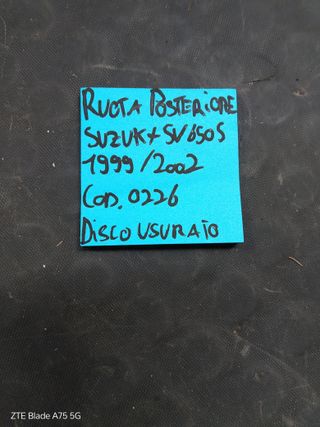 RUOTA POSTERIORE
SUZUKI SV650S
1999/2002
COD. 0226
DISCO USURATO
ZTE Blade A75 5G